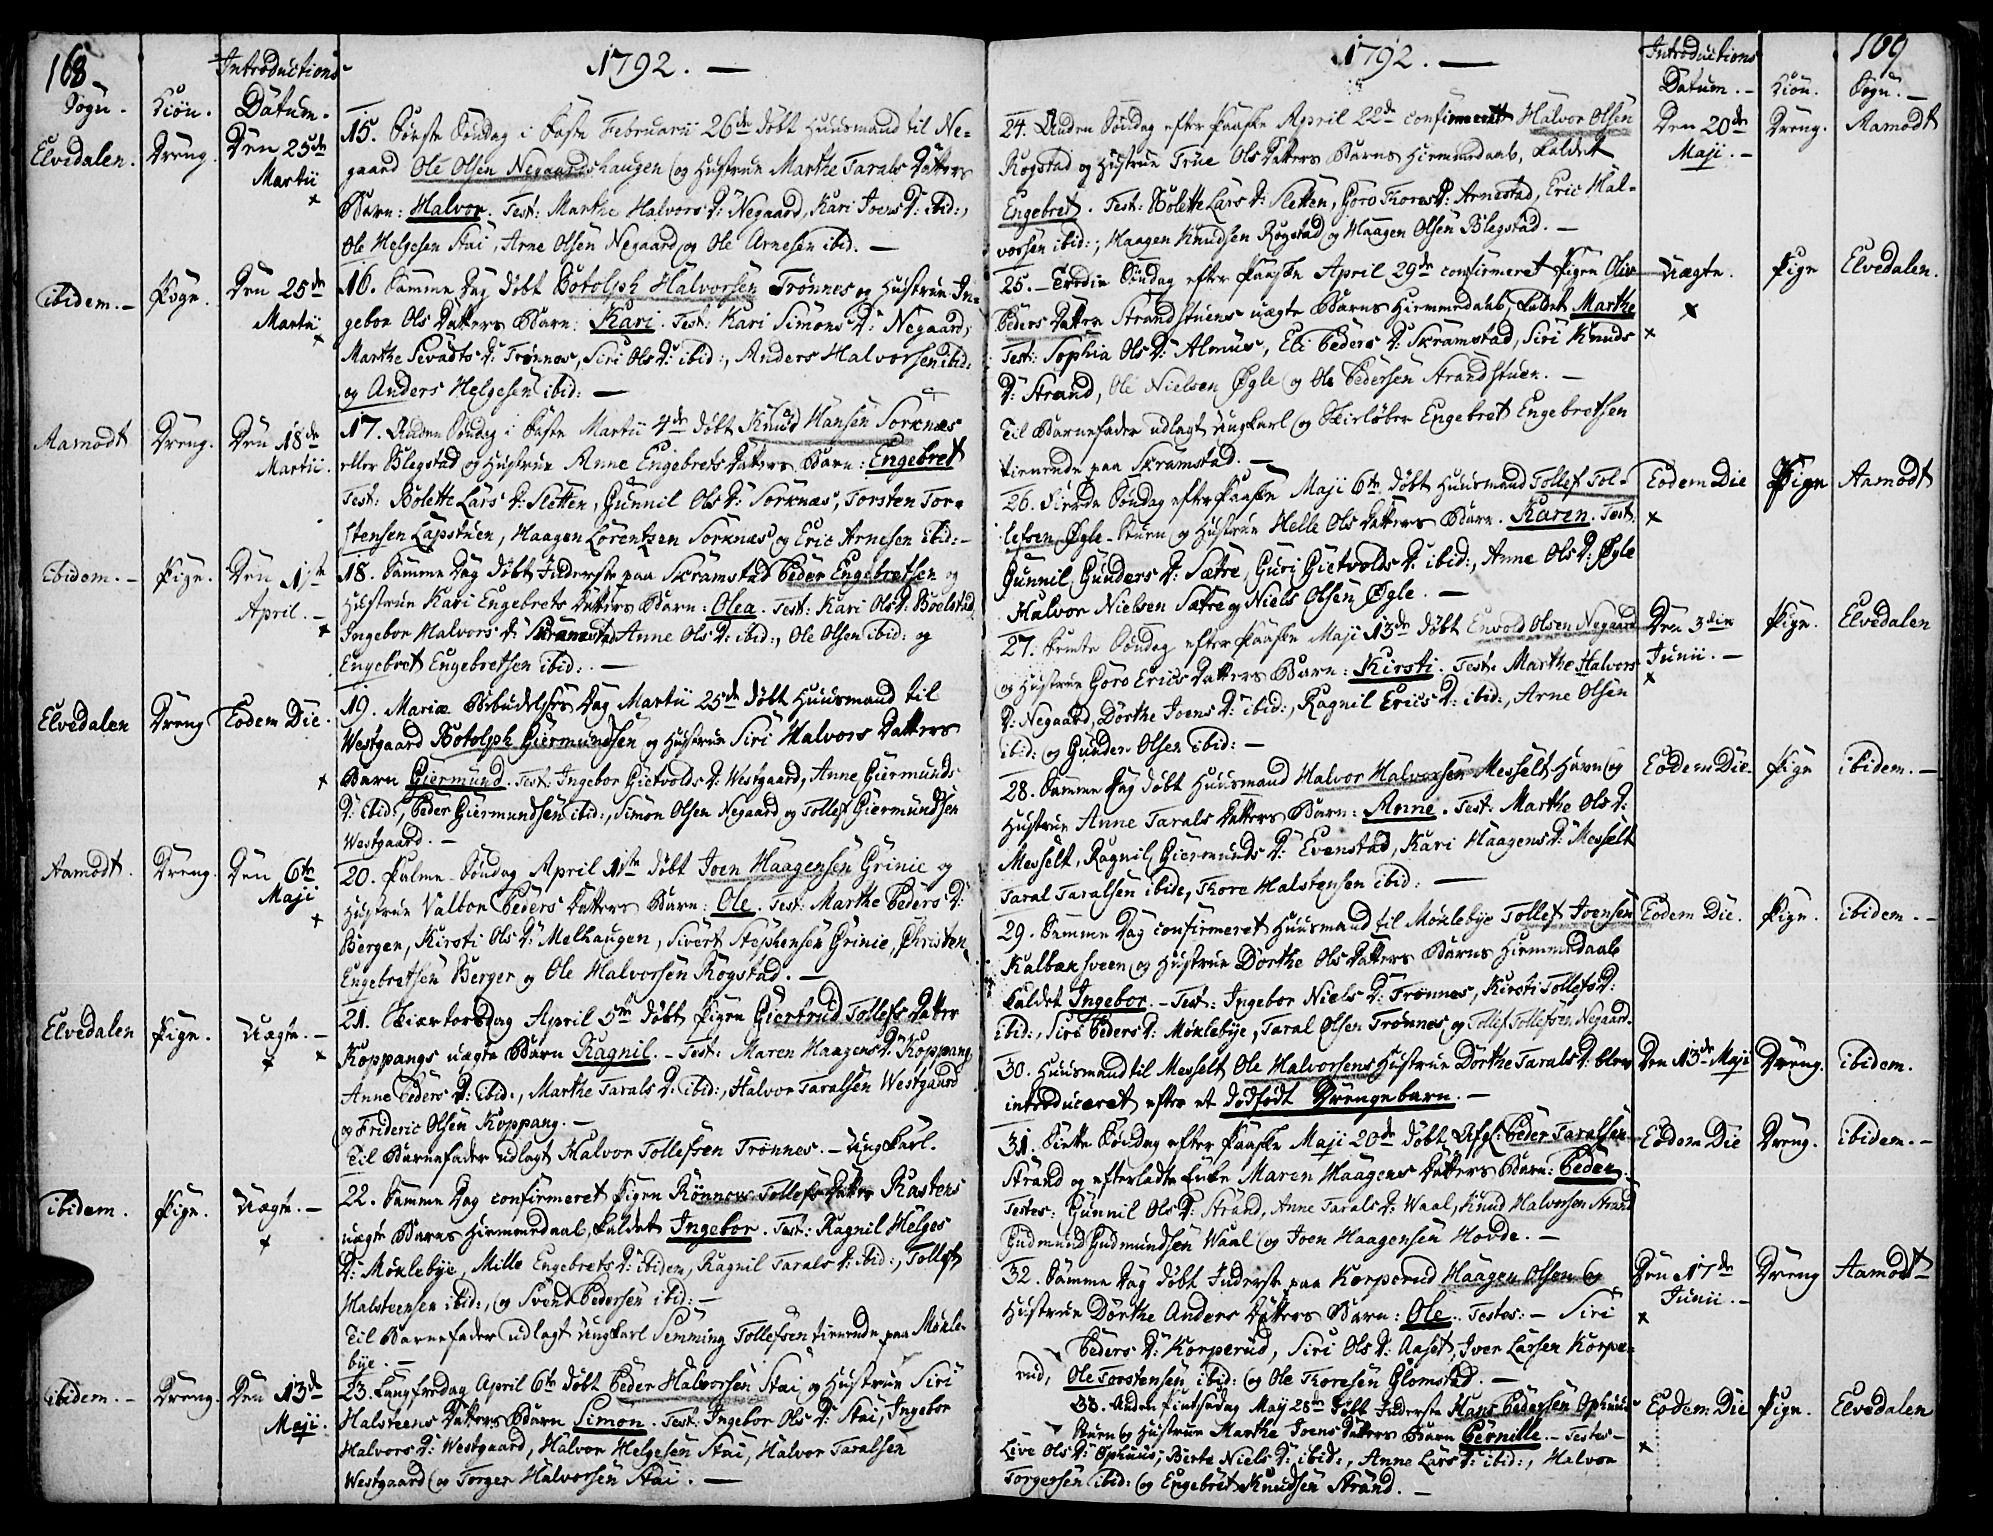 168
1792. —
Sogn. Kiön. Introductions Datum.
Elvedalen. Dreng. Den 25de Martii
15. Første Søndag i Faste Februarii 26de døbt Huusmand til Ne-
gaard Ole Olsen Negaardshaugen og Hustrue Marthe Tarals Datters
Barn: Halvor. Test: Marthe Halvors D: Negaard, Kari Joens D: ibid:,
Ole Helgesen Stai, Arne Olsen Negaard og Ole Arnesen ibid. —
ibidem. — Pige. Den 25de Martii
16. Samme Dag døbt Botolph Halvorsen Trønnes og Hustrue In-
gebor Ols Datters Barn: Kari. Test: Kari Simons D: Negaard,
Marthe Sevadts D: Trønnes, Siri Ols D: ibid:, Anders Halvorsen ibid.
og Anders Helgesen ibid: —
Aamodt Dreng. Den 18de Martii.
17. Anden Søndag i Faste Martii 4de døbt Knud Hansen Sorknæs
eller Blegstad og Hustrue Anne Engebrets Datters Barn: Engebret
Test: Bolette Lars D: Sletten, Gunnil Ols D: Sorknæs, Torsten Tor-
stensen Lapstuen, Haagen Lorentzen Sorknæs og Eric Arnesen ibid: —
ibidem. — Pige. Den 1ste April. —
18. Samme Dag døbt Inderste paa Skramstad Peder Engebretsen og
Hustrue Kari Engebrets Datters Barn: Olea. Test: Kari Ols D: Boelstad,
Ingebor Halvors D: Skramstad Anne Ols D: ibid:, Ole Olsen ibid: og
Engebret Engebretsen ibid: —
Elvedalen Dreng Eodem Die.
19. Mariæ Bebudelses Dag Martii 25de døbt Huusmand til
Westgaard Botolph Giermundsen og Hustrue Siri Halvors Datters
Barn Giermund. Test: Ingebor Gietvolds D: Westgaard, Anne Giermunds
D: ibid:, Peder Giermundsen ibid:, Simon Olsen Negaard og Tollef Giermundsen
Westgaard. —
Aamodt. Dreng. Den 6te Maji
20. Palme Søndag April 1ste døbt Joen Haagensen Grinie og
Hustrue Valbor Peders Datters Barn: Ole. Test: Marthe Peders D:
Bergen, Kirsti Ols D: Melhaugen, Sivert Stephensen Grinie, Christen
Engebretsen Berger og Ole Halvorsen Rogstad. —
Elvedalen Pige. Uægte. —
21. Skiærtorsdag April 5te døbt Pigen Giertrud Tollefs Datter
Koppangs uægte Barn Ragnil. — Test: Maren Haagens D: Koppang
Anne Peders D: ibid:, Marthe Tarals D: ibid:, Halvor Taralsen Westgaard
og Frideric Olsen Koppang. —
Til Barnefader udlagt Halvor Tollefsen Trønnes. — Ungkarl.
ibidem. Pige. Uægte. —
22. Samme Dag confirmeret Pigen Rönnou Tollefs Datter Rastens
uægte Barns Hiemmedaab, kaldet Ingebor. Test: Ragnil Helges
D: Møklebye, Mille Engebrets D: ibidem, Ragnil Tarals D: ibid:, Tollef
Halsteensen ibid:, og Svend Pedersen ibid: —
Til Barnefader udlagt Ungkarl Semming Tollefsen tienende paa Møkle-
bye. —
ibidem. — Dreng. Den 13de Maji.
23. Langfredag April 6te døbt Peder Halvorsen Stai og Hustrue Siri
Halsteens Datters Barn Simon. Test: Ingebor Ols D: Stai, Ingebor
Halvors D: Westgaard, Halvor Helgesen Stai, Halvor Taralsen
Westgaard og Torger Halvorsen Stai. —
1792. —
169
Introductions Datum. — Kiön. Sogn. —
24. Anden Søndag efter Paaske April 22de confirmeret Halvor Olsen
Rogstad og Hustrue Trüe Ols Datters Barns Hiemmedaab, kaldet
Engebret. Test: Bolette Lars D: Sletten, Goro Thores D: Arnestad, Eric Hal-
vorsen ibid:, Haagen Knudsen Rogstad og Haagen Olsen Blegstad. —
Den 20de Maji. — Dreng. Aamodt
25. — Tredie Søndag efter Paaske April 29de confirmeret Pigen Oliv
Peders Datter Strandstuens uægte Barns Hiemmedaab, kaldet Marthe
Test: Sophia Ols D: Almus, Eli Peders D: Skramstad, Siri Knuds
D: Strand, Ole Nielsen Øgle og Ole Pedersen Strandstuen. —
Til Barnefader udlagt Ungkarl og Skielöber Engebret Engebretsen
tienende paa Skramstad. —
Uægte. Pige Elvedalen.
26. Fierde Søndag efter Paaske Maji 6te døbt Huusmand Tollef Tol-
lefsen Øgle-Stuen og Hustrue Helle Ols Datters Barn. Karen. Test.
Gunnil Gunders D: Sætre, Guri Gietvolds D: ibid:, Anne Ols D: Øgle
Halvor Nielsen Sætre og Niels Olsen Øgle. —
Eodem Die Pige Aamodt
27. Femte Søndag efter Paaske Maji 13de døbt Envold Olsen Negaard
og Hustrue Goro Erics Datters Barn: Kirsti. Test: Marthe Halvors
D: Negaard, Dorthe Joens D: ibid:, Ragnil Erics D: ibid:, Arne Olsen
ibid: og Gunder Olsen ibid: —
Den 3die Junii. — Pige. Elvedalen
28. Samme Dag døbt Huusmand Halvor Halvorsen Messelt Haven og
Hustrue Anne Tarals Datters Barn: Anne. Test: Marthe Ols D:
Messelt, Ragnil Giermunds D: Evenstad, Kari Haagens D: Messelt
Taral Taralsen ibid:, Thore Halstensen ibid: —
Eodem Die Pige ibidem. —
29. Samme Dag confirmeret Huusmand til Møklebye Tollef Joensen
Kalbæksveen og Hustrue Dorthe Ols Datters Barns Hiemmedaab
kaldet Ingebor. — Test: Ingebor Niels D: Trønnes, Kirsti Tollefs D:
ibid:, Siri Peders D: Møklebye, Taral Olsen Trønnes og Tollef Tollefsen Negaard.
Eodem Die. Pige. ibidem. —
30. Huusmand til Messelt Ole Halvorsens Hustrue Dorthe Tarals D: blev
introduceret efter et dødfødt Drengebarn. —
Den 13de Maji Dreng. ibidem.
31. Siette Søndag efter Paaske Maji 20de døbt Afg: Peder Taralsen
Strand og efterladte Enke Maren Haagens Datters Barn: Peder.
Testes: Gunnil Ols D: Strand, Anne Tarals D: Waal, Knud Halvorsen Strand
Gudmund Gudmundsen Waal og Joen Haagensen Hovde. —
Eodem Die Dreng. ibidem. —
32. Samme Dag døbt Inderste paa Korperud Haagen Olsen og
Hustrue Dorthe Anders Datters Barn: Ole. Testes: — Siri
Peders D: Korperud, Siri Ols D: Aaset, Iver Larsen Korpe-
rud, Ole Torstensen ibid: og Ole Thoresen Glomstad. —
Den 17de Junii. — Dreng Aamodt
33. Anden Pintsedag Maij 28de døbt Inderste Hans Pedersen Ophuus-
Stuen og Hustrue Marthe Joens Datters Barn Pernille. — Testes —
Live Ols D: Ophuus, Berte Niels D: ibid:, Anne Lars D: ibid:, Halvor
Torgersen ibid: og Engebret Knudsen Strand. —
Eodem Die Pige. Elvedalen